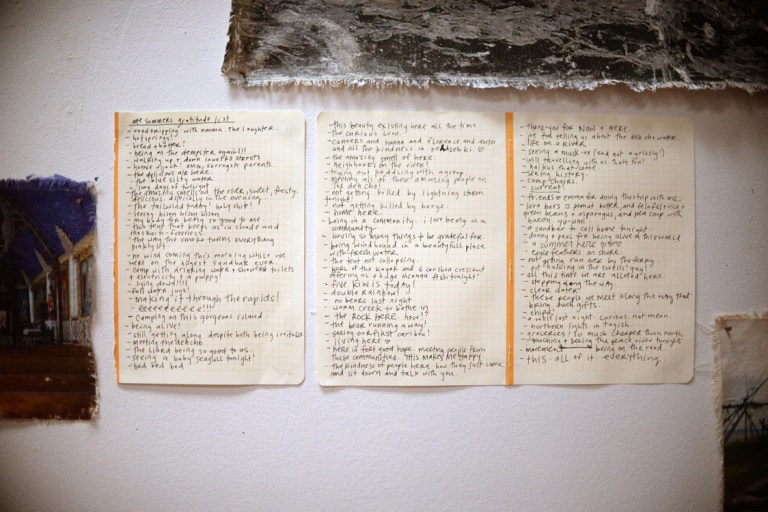 summers gratitude list
- roadtripping with emma. the laughter.
- hotsprings!
- bread & butter!
- being on the dempster again!!!
- walking up & down inuviks streets
- home of jack & anna, surrogate parents.
- the delicious air here.
- the blue silty water.
- long days of twilight
- the amazing smells on the river, sweet, frosty,
delicious. especially in the evening.
- the tailwind today! holy shit!
- seeing bison bison bison
- my body for being so good to me
- this tent that keeps us in shade and
mosquito-freeness!
- the way the smoke turns everything
pinky soft.
- no wind coming this morning while we
were on the longest sandbank ever
- camp with drinking water & shower & toilets
& electricity & a puppy!
- lying down!!!!
- full down jugs!
- making it through the rapids!
eeeeeeeeeee!!!!
- camping on this gorgeous island
- being alive!
- still getting along despite both being irritable
- meeting the dehcho
- the liard being so good to us.
- seeing a baby seagull tonight!
- bed bed bed
- this beauty existing here all the time
- the curious loon.
- canners and hanna and florence and
and all the kindness in
- the amazing smell of here
- neighbours on the river!
- trying out paddling with a group
- meeting all of these amazing people on
the deh cho!
- not getting killed by lightning storm
tonight.
- not getting killed by barge
- home here.
- being in a community. i love being in a
community
- having so many things to be grateful for
- being windbound in a beautifull place
with fresh water.
- the tent not collapsing.
- bork of the kayak and & caribou crossing
offering us a bridge monona fish tonight!
- five kiwis today!
- double rainbow!
- no bears last night
- warm creek to bathe in
- the ROCK HERE. how!?
- the bear running away!
- seeing our first caribou!
- living here
- here is feel good hope. meeting people from
these communities. this makes me happy
- the kindness of people here how they just come
and sit down and talk with you.
- thank you for NOW & HERE
- joe for telling us about the deh cho water.
- life on a river
- seeing a musk-ox (and not a grizzly!)
- will travelling with us that far!
- haikus that come
- seeing history.
- camp chairs.
- current
- friends & emma for doing this trip with me.
- lara bars & peanut butter, and felafel rice &
green beans & asparagus, and pea soup with
bacon. yu-um!
- a sandbar to call home tonight
- danny & paus for being alive & this world
- a summer here
- eagle feathers on shore
- not getting run over by the ferry
- not building in the swells (yay!
- all this time we are allowed here.
- stopping along the way
- clear water!
- these people we meet along the way that
bring such gifts.
- child!
- the bear last night. curious. not mean.
- northern lights in tagish
- groceries! so much cheaper than north.
- touching & seeing the peace river tonight
- movement being on the road
- this. all of it. everything.